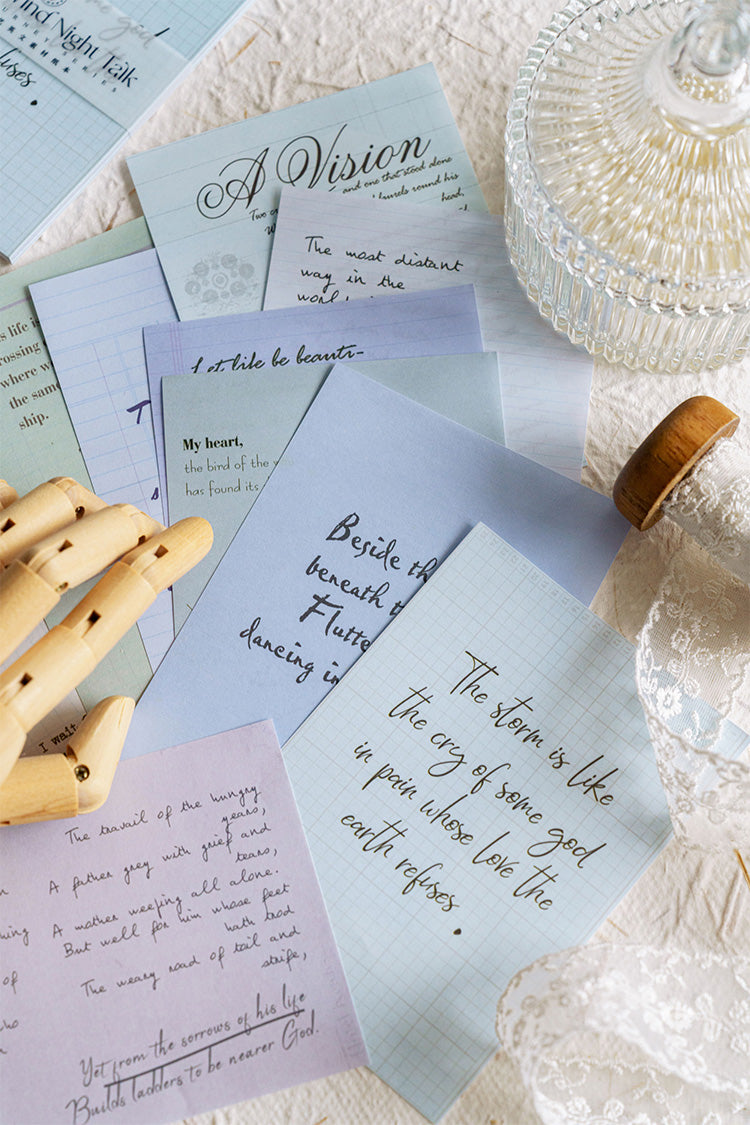 some god
Wind Night Talk
uses.
A Vision
and one that stood alone
laurels round his
head,
The most distant
way in the
Let life be beauti-
s life is
rossing
where w
the same
ship.
My heart,
the bird of the
has found its
Beside th
beneath t
Flutte
dancing in
The storm is like
the cry of some god
in pain whose love the
earth refuses.
I wait
The travail of the hungry
years,
A father grey with grief and
tears,
A mother weeping all alone.
But well for him whose feet
hath trod
The weary road of toil and
strife,
Yet from the sorrows of his life
Builds ladders to be nearer God.
hing
of